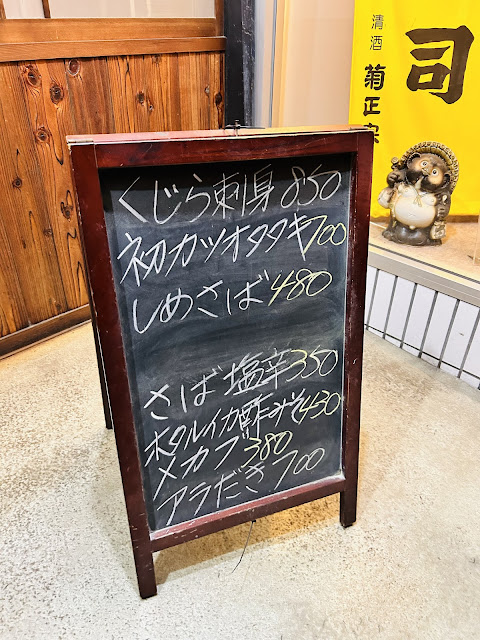 くじら刺身 850
初カツオタタキ 700
しめさば 480
さば塩辛 350
ホタルイカ酢みそ 430
メカブ 380
アラだき 700
清酒
菊正宗
司